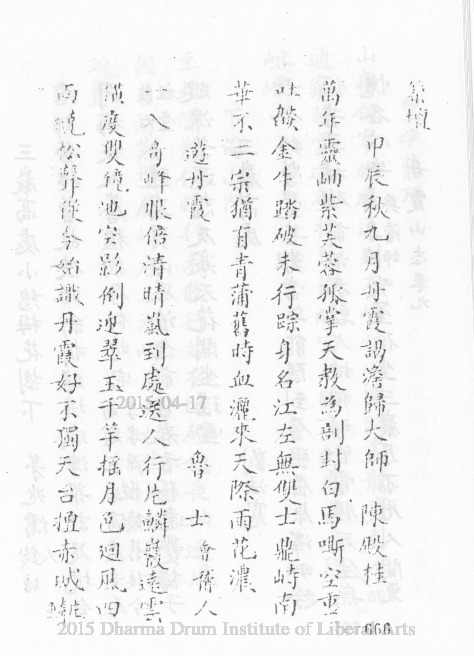 築壇
甲辰秋九月丹霞謁澹歸大師 陳殿桂
萬年靈岫紫芙蓉孤掌天教為劃封白馬嘶空重
吐燄金牛踏破未行踪身名江左無雙士鼎峙南
華不二宗猶有青蒲舊時血灑來天際雨花濃
遊丹霞 魯士
一入奇峰眼倍清晴嵐到處送人行片鱗巖遠雲
橫度雙鏡池空影倒迎翠玉千竿搖月色迴風四
面曉松聲從今始識丹霞好不獨天台擅赤城
666
2015-04-17
2015 Dharma Drum Institute of Liberal Arts